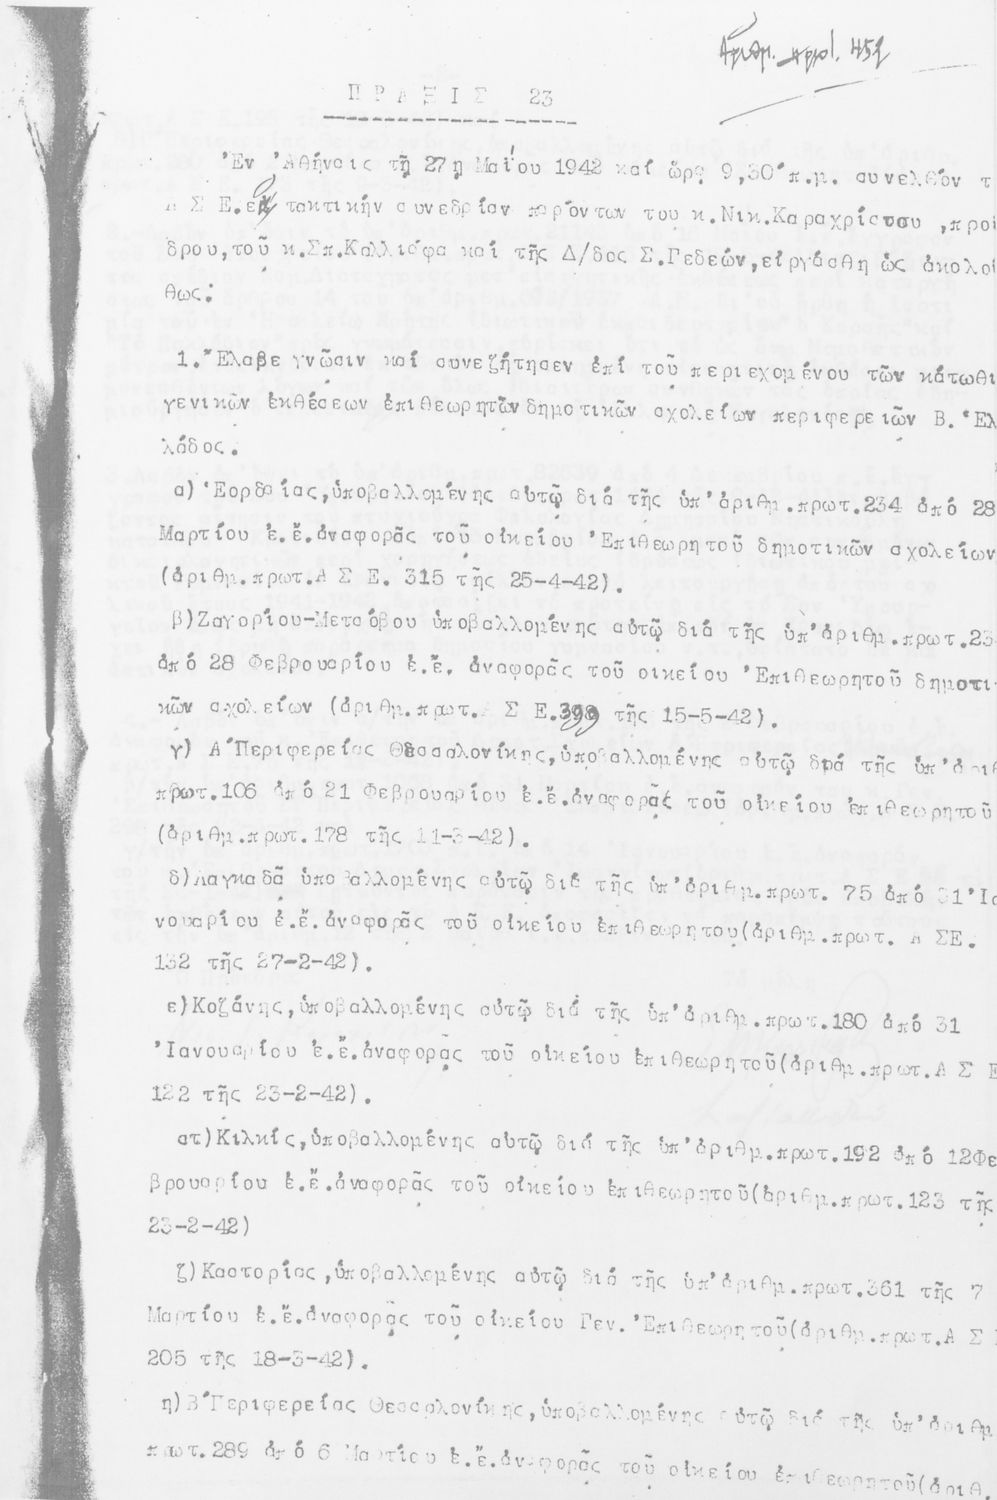 Αριθμ. πρωτ. 452
ΠΡΑΞΙΣ 23
Ἐν Ἀθήναις τῇ 27η Μαΐου 1942 καί ὥρα 9,30΄π.μ. συνελθόν τ
Α Σ Ε. εἰς τακτικήν συνεδρίαν παρόντων του κ.Νικ.Καραχρίστου ,προέ
δρου,τοῦ κ.Σπ.Καλλιάφα καί τῆς Δ/δος Σ.Γεδεών,εἰργάσθη ὡς ἀκολού
θως:
1. Ἔλαβε γνῶσιν καί συνεζήτησεν ἐπί τοῦ περιεχομένου τῶν κάτωθι
γενικῶν ἐκθέσεων ἐπιθεωρητῶν δημοτικῶν σχολείων περιφερειῶν Β. Ἑλ
λάδος.
α) Ἐορδαίας,ὑποβαλλομένης αὐτῷ διά τῆς ὑπ' ἀριθμ.πρωτ.234 ἀπό 28
Μαρτίου ἐ.ἔ.ἀναφορᾶς τοῦ οἰκείου Ἐπιθεωρητοῦ δημοτικῶν σχολείων
(ἀριθμ.πρωτ.Α Σ Ε. 315 τῆς 25-4-42).
β)Ζαγορίου-Μετσόβου ὑποβαλλομένης αὐτῷ διά τῆς ὑπ' ἀριθμ.πρωτ.23
ἀπό 28 Φεβρουαρίου ἐ.ἔ. ἀναφορᾶς τοῦ οικείου Ἐπιθεωρητοῦ δημοτι-
κῶν σχολείων (ἀριθμ.πρωτ.Α Σ Ε.399 τῆς 15-5-42).
γ) Α΄Περιφερείας Θεσσαλονίκης,ὑποβαλλομένης αὐτῷ διά τῆς ὑπ' ἀριθ
πρωτ.106 ἀπό 21 Φεβρουαρίου ἐ.ἔ.ἀναφορᾶς τοῦ οἰκείου ἐπιθεωρητοῦ
(ἀριθμ.πρωτ.178 τῆς 11-3-42).
δ)Λαγκαδᾶ ὑποβαλλομένης αὐτῷ διά τῆς ὑπ' ἀριθμ.πρωτ. 75 ἀπό 31 Ἰα
νουαρίου ἐ.ἔ.ἀναφορᾶς τοῦ οἰκείου ἐπιθεωρητου(ἀριθμ.πρωτ. Α ΣΕ.
132 τῆς 27-2-42).
ε)Κοζάνης,ὑποβαλλομένης αὐτῷ διά τῆς ὑπ' ἀριθμ.πρωτ.180 ἀπό 31
Ἰανουαρίου ἐ.ἔ.ἀναφορᾶς τοῦ οἰκείου ἐπιθεωρητοῦ(ἀριθμ.πρωτ.Α Σ Ε
122 τῆς 23-2-42).
στ)Κιλκίς,ὑποβαλλομένης αὐτῷ διά τῆς ὑπ' ἀριθμ.πρωτ.192 ἀπό 12Φε
βρουαρίου ἐ.ἔ.ἀναφορᾶς τοῦ οἰκείου ἐπιθεωρητοῦ(ἀριθμ.πρωτ.123 τῆς
23-2-42)
ζ)Καστορίας,ὑποβαλλομένης αὐτῷ διά τῆς ὑπ' ἀριθμ.πρωτ.361 τῆς 7
Μαρτίου ἐ.ἔ.ἀναφορᾶς τοῦ οἰκείου Γεν. Ἐπιθεωρητοῦ(ἀριθμ.πρωτ.Α Σ
205 τῆς 18-3-42).
η)Β΄Περιφερείας Θεσσαλονίκης,ὑποβαλλομένης αὐτῷ διά τῆς ὑπ' ἀριθμ
πρωτ.289 ἀπό 6 Μαρτίου ἐ.ἔ.ἀναφορᾶς τοῦ οἰκείου ἐπιθεωρητοῦ(ἀριθ.